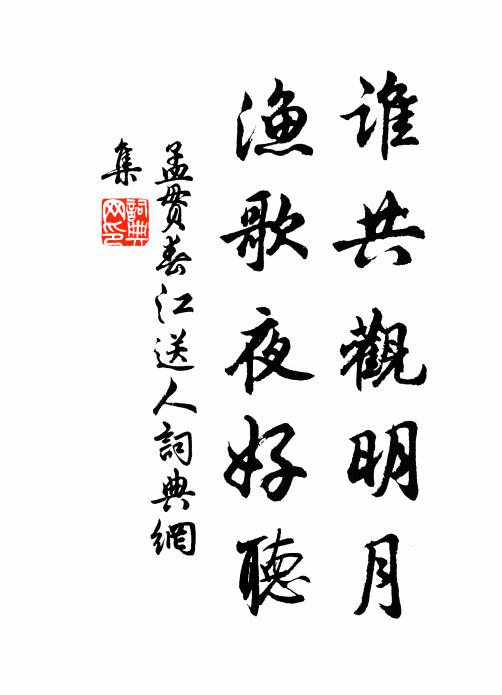 誰共觀明月
漁歌夜好聽
孟貫春江送人詞典網
集
詞典
网印